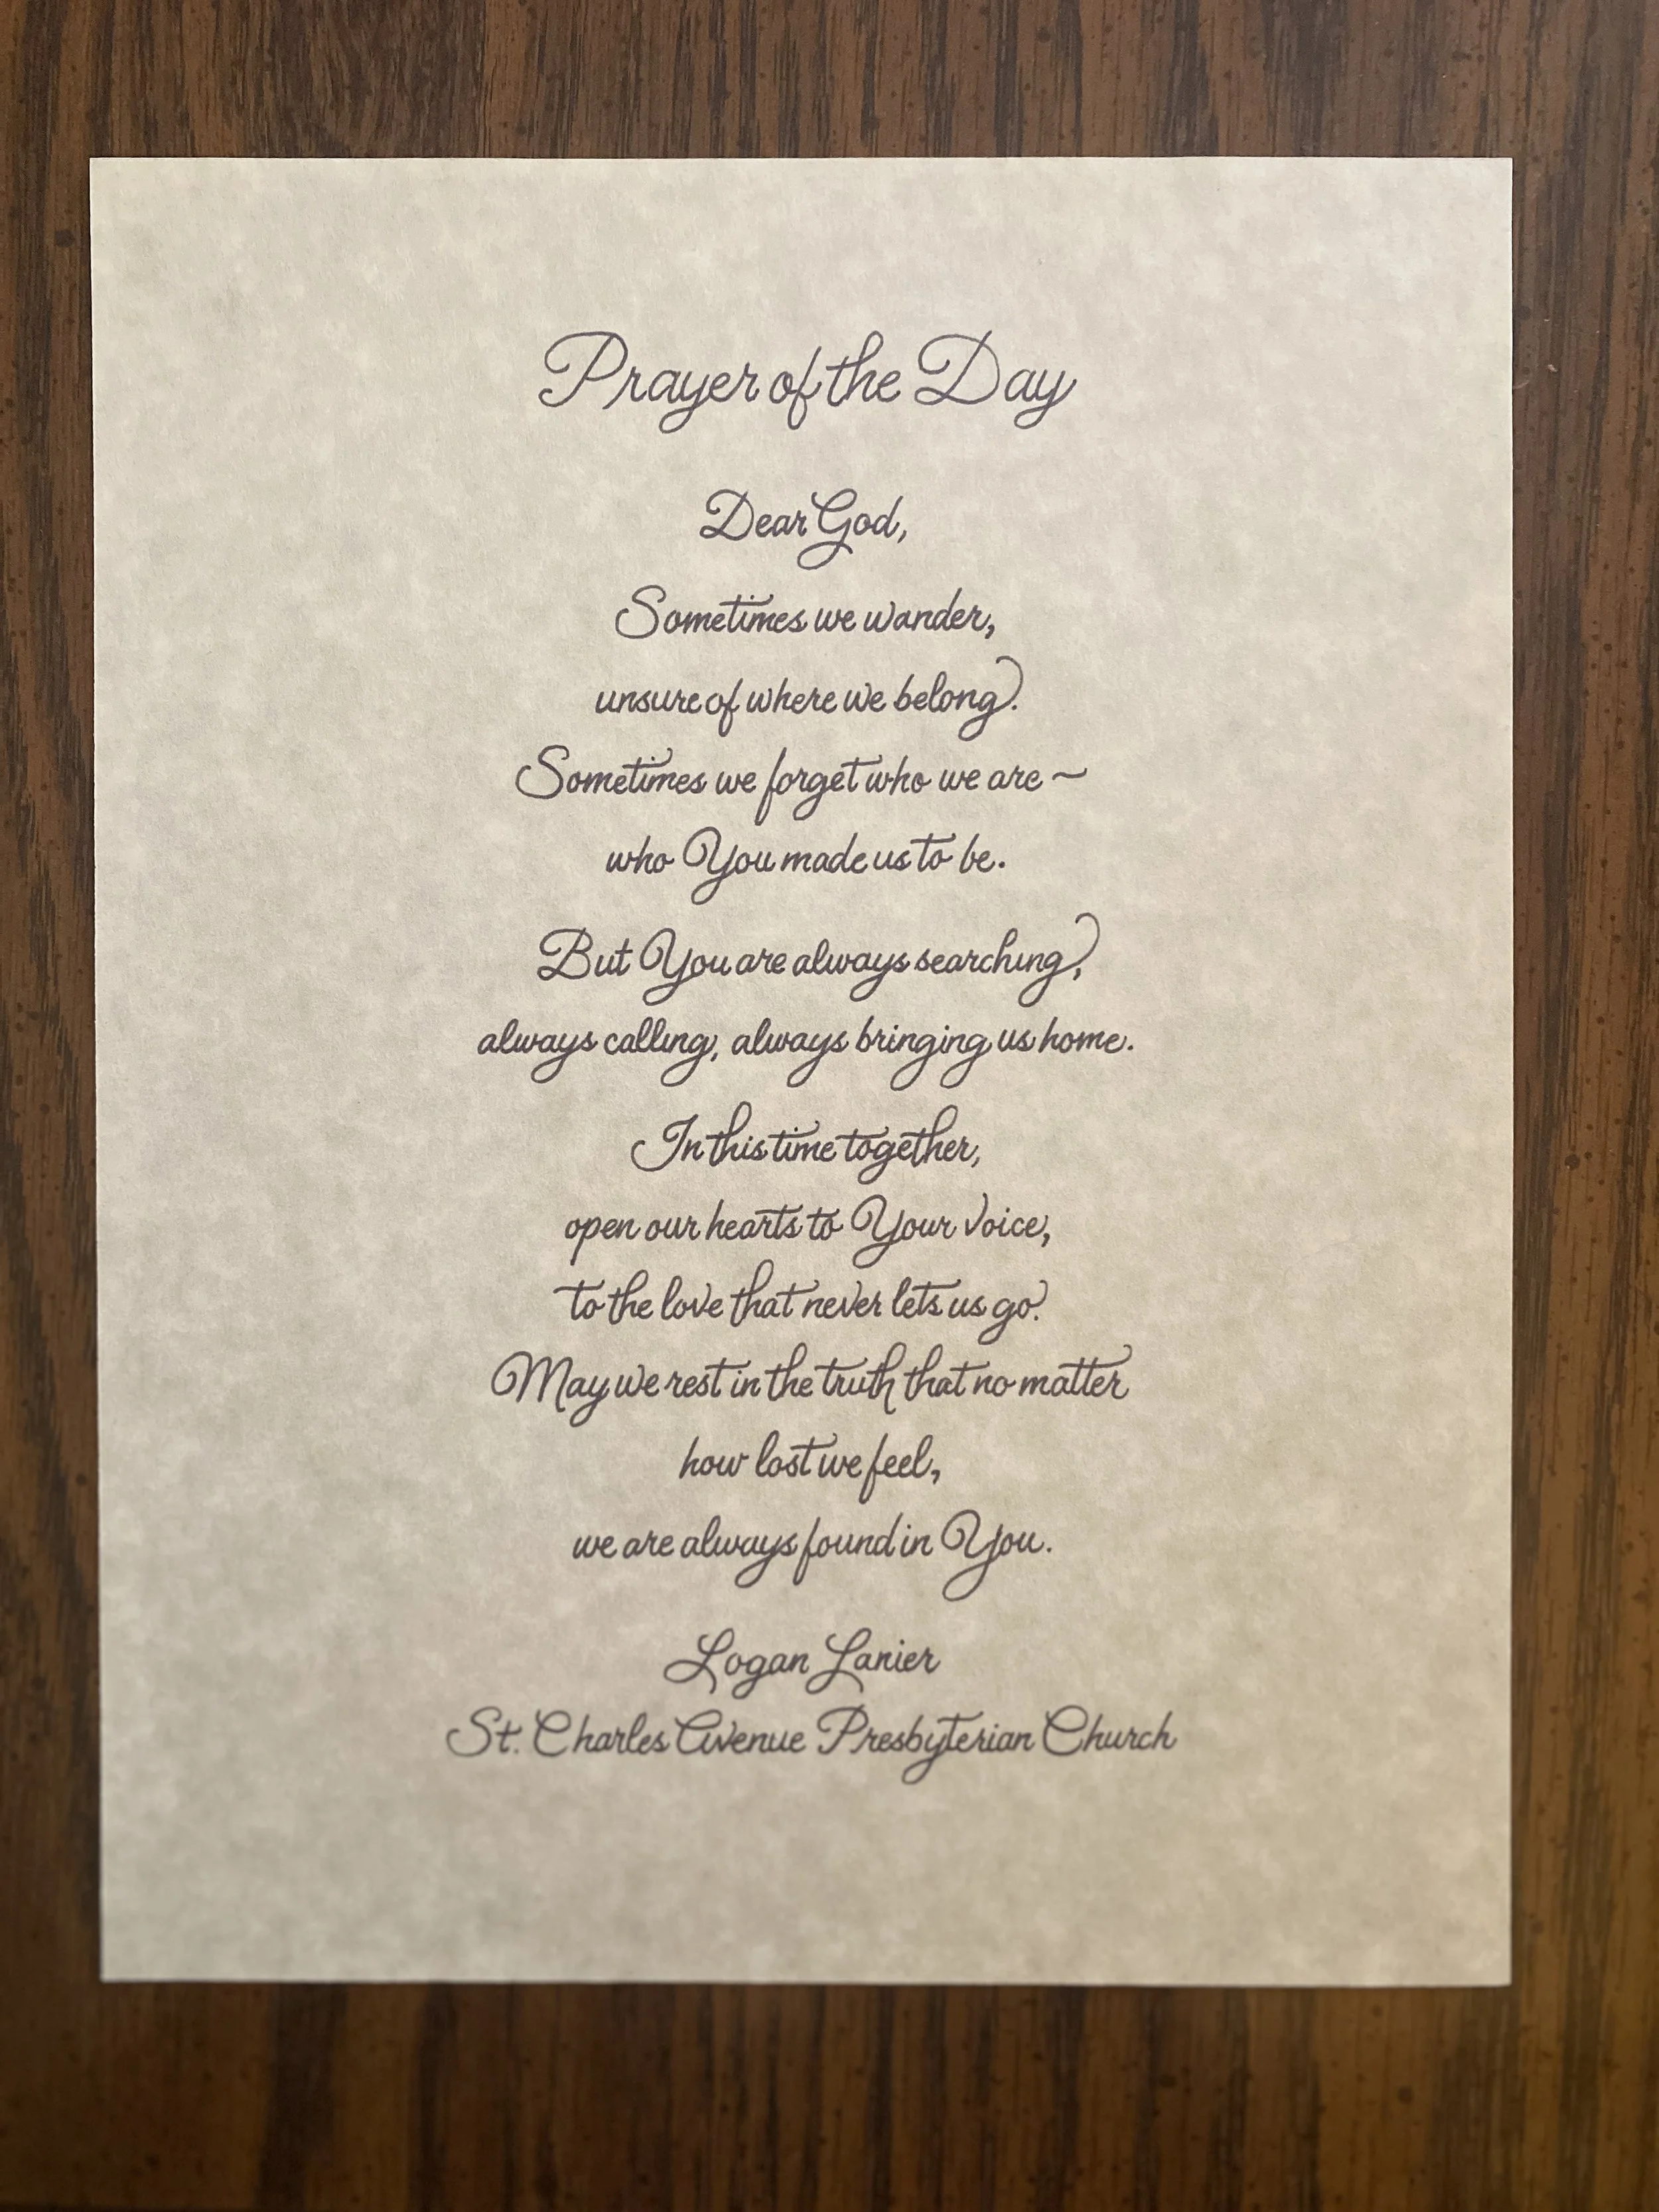 Prayer of the Day
Dear God,
Sometimes we wander,
unsure of where we belong.
Sometimes we forget who we are ~
who You made us to be.
But You are always searching,
always calling, always bringing us home.
In this time together,
open our hearts to Your voice,
to the love that never lets us go.
May we rest in the truth that no matter
how lost we feel,
we are always found in You.
Logan Lanier
St. Charles Avenue Presbyterian Church